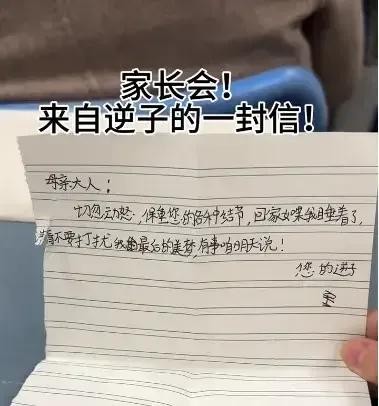 家长会！
来自逆子的一封信！
母亲大人：
切忽动怒，保重您的各个结节，回家如果我睡着了，
请不要打扰我最后的美梦，有事咱明天说！
您的逆子